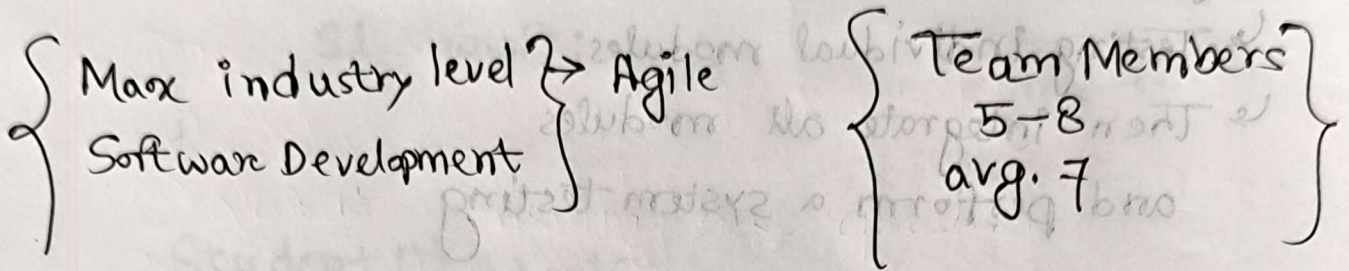 Max industry level → Agile
Software Development
Team Members
5-8
avg. 7